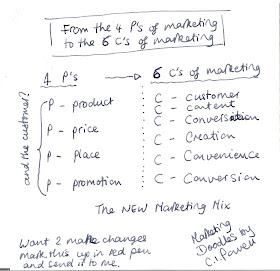 From the 4 P's of marketing
to the 6 C's of marketing
4 P's → 6 C's of marketing
and the customer?
P - product
P - price
P - place
P - promotion
C - Customer
C - Content
C - Conversation
C - Creation
C - Convenience
C - Conversion
The NEW Marketing Mix
Want 2 make changes
mark this up in red pen
and send it to me.
Marketing
Doodles by
C.I. Powell